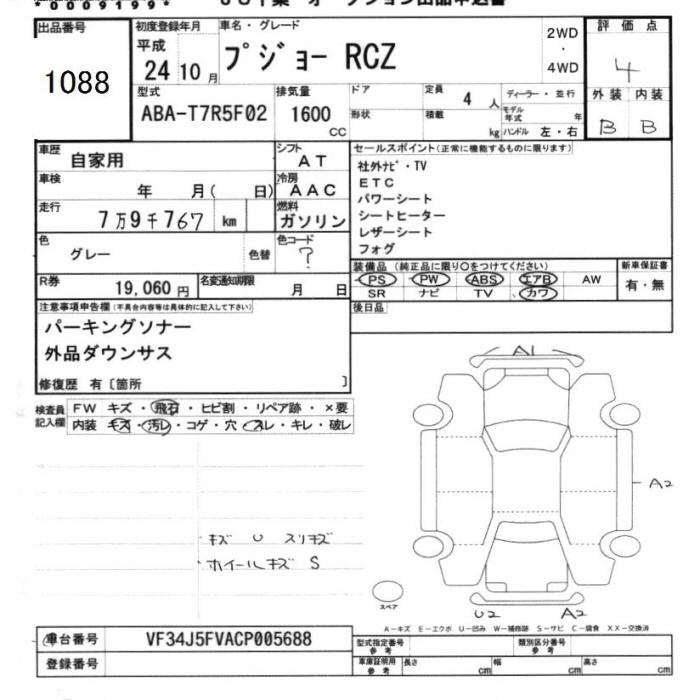 *0009199*
出品番号
1088
初度登録年月
平成
24 10 月
車名・グレード
プジョー RCZ
2WD
・
4WD
評価点
4
外装 内装
B B
型式
ABA-T7R5F02
排気量
1600
CC
ドア
形状
定員
4 人
積載
kg
ディーラー・並行
モデル年式 年
ハンドル 左・右
車歴
自家用
シフト
AT
車検
年 月( 日)
冷房
AAC
走行
7万9千767 km
燃料
ガソリン
色
グレー
色替
色コード
?
R券
19,060 円
名変通知期限
月 日
セールスポイント(正常に機能するものに限ります)
社外ナビ・TV
ETC
パワーシート
シートヒーター
レザーシート
フォグ
装備品(純正品に限り○をつけてください)
PS PW ABS エアB AW
SR ナビ TV カワ
新車保証書
有・無
後日品
注意事項申告欄(不具合内容等は具体的に記入して下さい)
パーキングソナー
外品ダウンサス
修復歴 有〔箇所 〕
検査員
記入欄
FW キズ・飛石・ヒビ割・リペア跡・×要
内装 キズ・汚レ・コゲ・穴・スレ・キレ・破レ
キズ U スリキズ
ホイールキズ S
A1
A2
スペア
U2 A2
A-キズ E-エクボ U-凹み W-補修跡 S-サビ C-腐食 XX-交換済
車台番号
VF34J5FVACP005688
登録番号
型式指定番号
参考
類別区分番号
参考
車庫証明用
参考
長さ cm
幅 cm
高さ cm